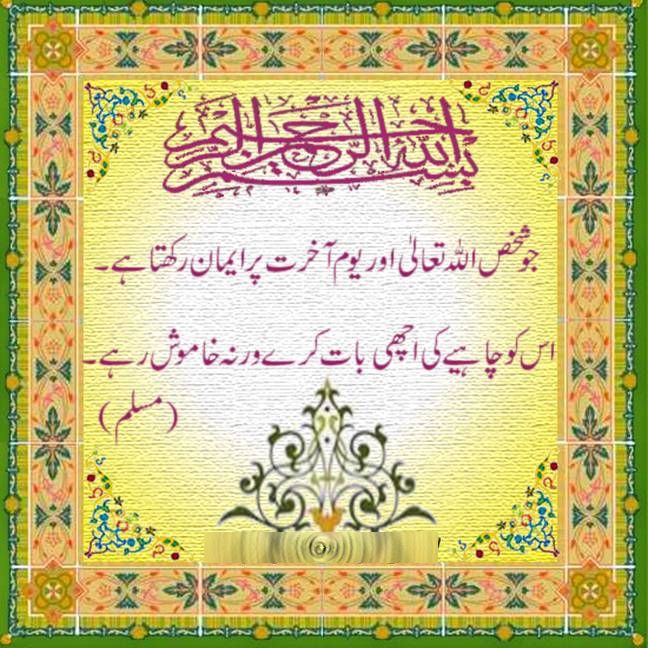 بسم الله الرحمن الرحيم
جو شخص اللہ تعالٰی اور یوم آخرت پر ایمان رکھتا ہے۔
اس کو چاہیے کی اچھی بات کرے ورنہ خاموش رہے۔
(مسلم)